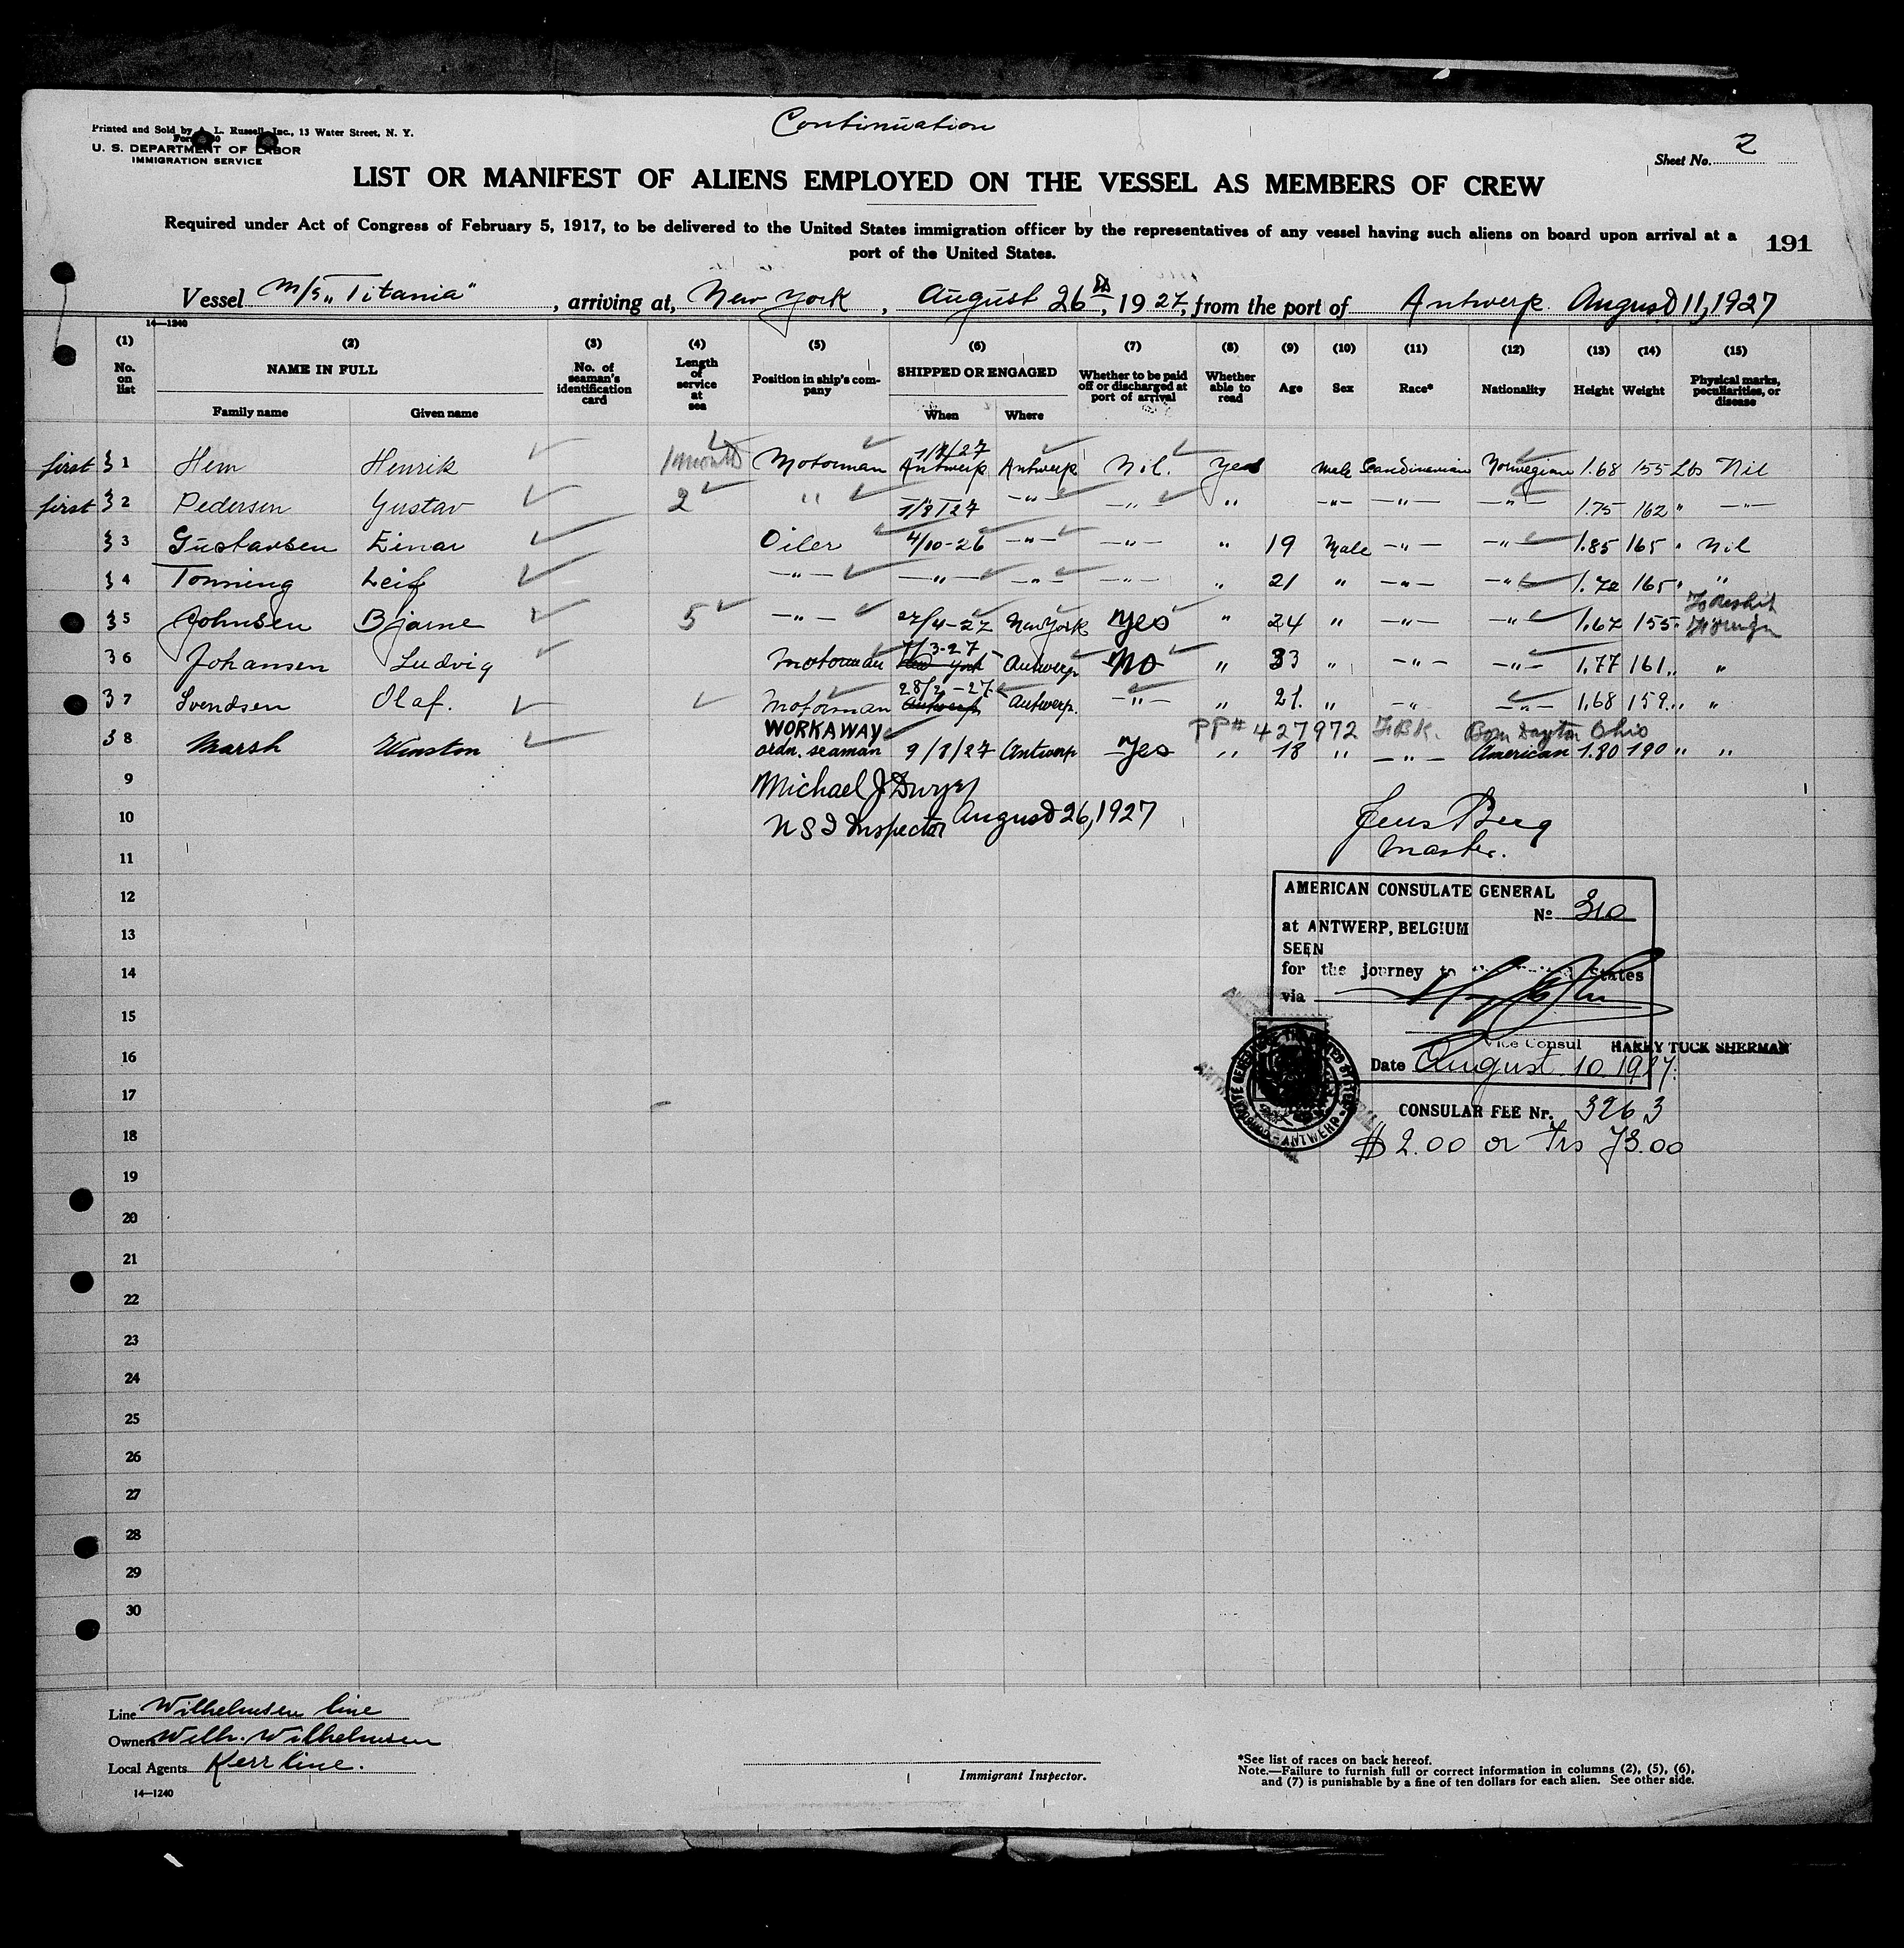 Continuation
Printed and Sold by A. L. Russell, Inc., 13 Water Street, N. Y.
U. S. DEPARTMENT OF LABOR
IMMIGRATION SERVICE
Sheet No. 2
LIST OR MANIFEST OF ALIENS EMPLOYED ON THE VESSEL AS MEMBERS OF CREW
Required under Act of Congress of February 5, 1917, to be delivered to the United States immigration officer by the representatives of any vessel having such aliens on board upon arrival at a
port of the United States.
191
Vessel M/S „Titania", arriving at, New York, August 26th, 1927, from the port of Antwerp August 11, 1927
14—1240
(1) (2) (3) (4) (5) (6) (7) (8) (9) (10) (11) (12) (13) (14) (15)
No. on list NAME IN FULL Family name Given name No. of seaman's identification card Length of service at sea Position in ship's company SHIPPED OR ENGAGED When Where Whether to be paid off or discharged at port of arrival Whether able to read Age Sex Race* Nationality Height Weight Physical marks, peculiarities, or disease
first 1 Hem Henrik 1 month Motorman Antwerp Antwerp Nil. Yes Male Scandinavian Norwegian 1.68 155 Lbs Nil
first 2 Pedersen Gustav 2 " 1/8/27 -"- -"- " -"- -"- -"- 1.75 162 " -"-
3 Gustavsen Einar Oiler 4/10-26 -"- -"- " 19 Male -"- -"- 1.85 165 " Nil
4 Tonning Leif -"- -"- -"- -"- " 21 " -"- -"- 1.72 165 " "
5 Johnsen Bjarne 5 -"- 27/4-27 New York Yes " 24 " -"- -"- 1.67 155 "
6 Johansen Ludvig Motorman 3-27 New York Antwerp No " 33 " -"- -"- 1.77 161 " "
7 Svendsen Olaf. Motorman 28/2-27 Antwerp Antwerp. -"- " 21. " -"- -"- 1.68 159 " "
WORKAWAY PP# 427972 Born Dayton Ohio
8 Marsh Winston ordn. seaman 9/8/27 Antwerp Yes " 18 " -"- American 1.80 190 " "
9
Michael J Dwyer
10
N S I Inspector August 26, 1927
Jens Berg
Master.
11
12
13
14
15
16
17
18
19
20
21
22
23
24
25
26
27
28
29
30
AMERICAN CONSULATE GENERAL
No 310
at ANTWERP, BELGIUM
SEEN
for the journey to States
via
Vice Consul HARRY TUCK SHERMAN
Date August 10. 1927.
CONSULAR FEE Nr. 3263
$2.00 or Frs 73.00
ANTWERP
Line Wilhelmsen line
Owners Wilh. Wilhelmsen
Local Agents Kerr line.
14—1240
Immigrant Inspector.
*See list of races on back hereof.
Note.—Failure to furnish full or correct information in columns (2), (5), (6),
and (7) is punishable by a fine of ten dollars for each alien. See other side.